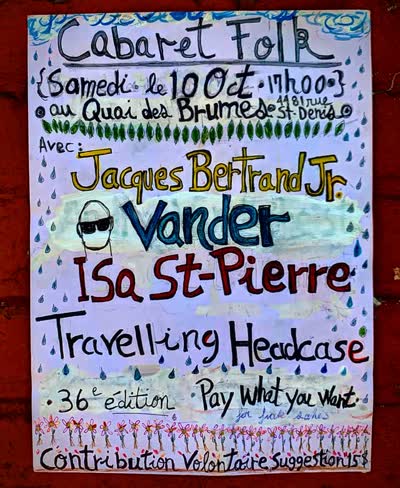 Cabaret Folk
{Samedi · le 10 Oct · 17h00 ·}
au Quai des Brumes · 4481 rue St-Denis
Avec:
Jacques Bertrand Jr.
Vander
Isa St-Pierre
Travelling Headcase
· 36e édition · Pay What you Want ·
for
Contribution Volontaire Suggestion 15$